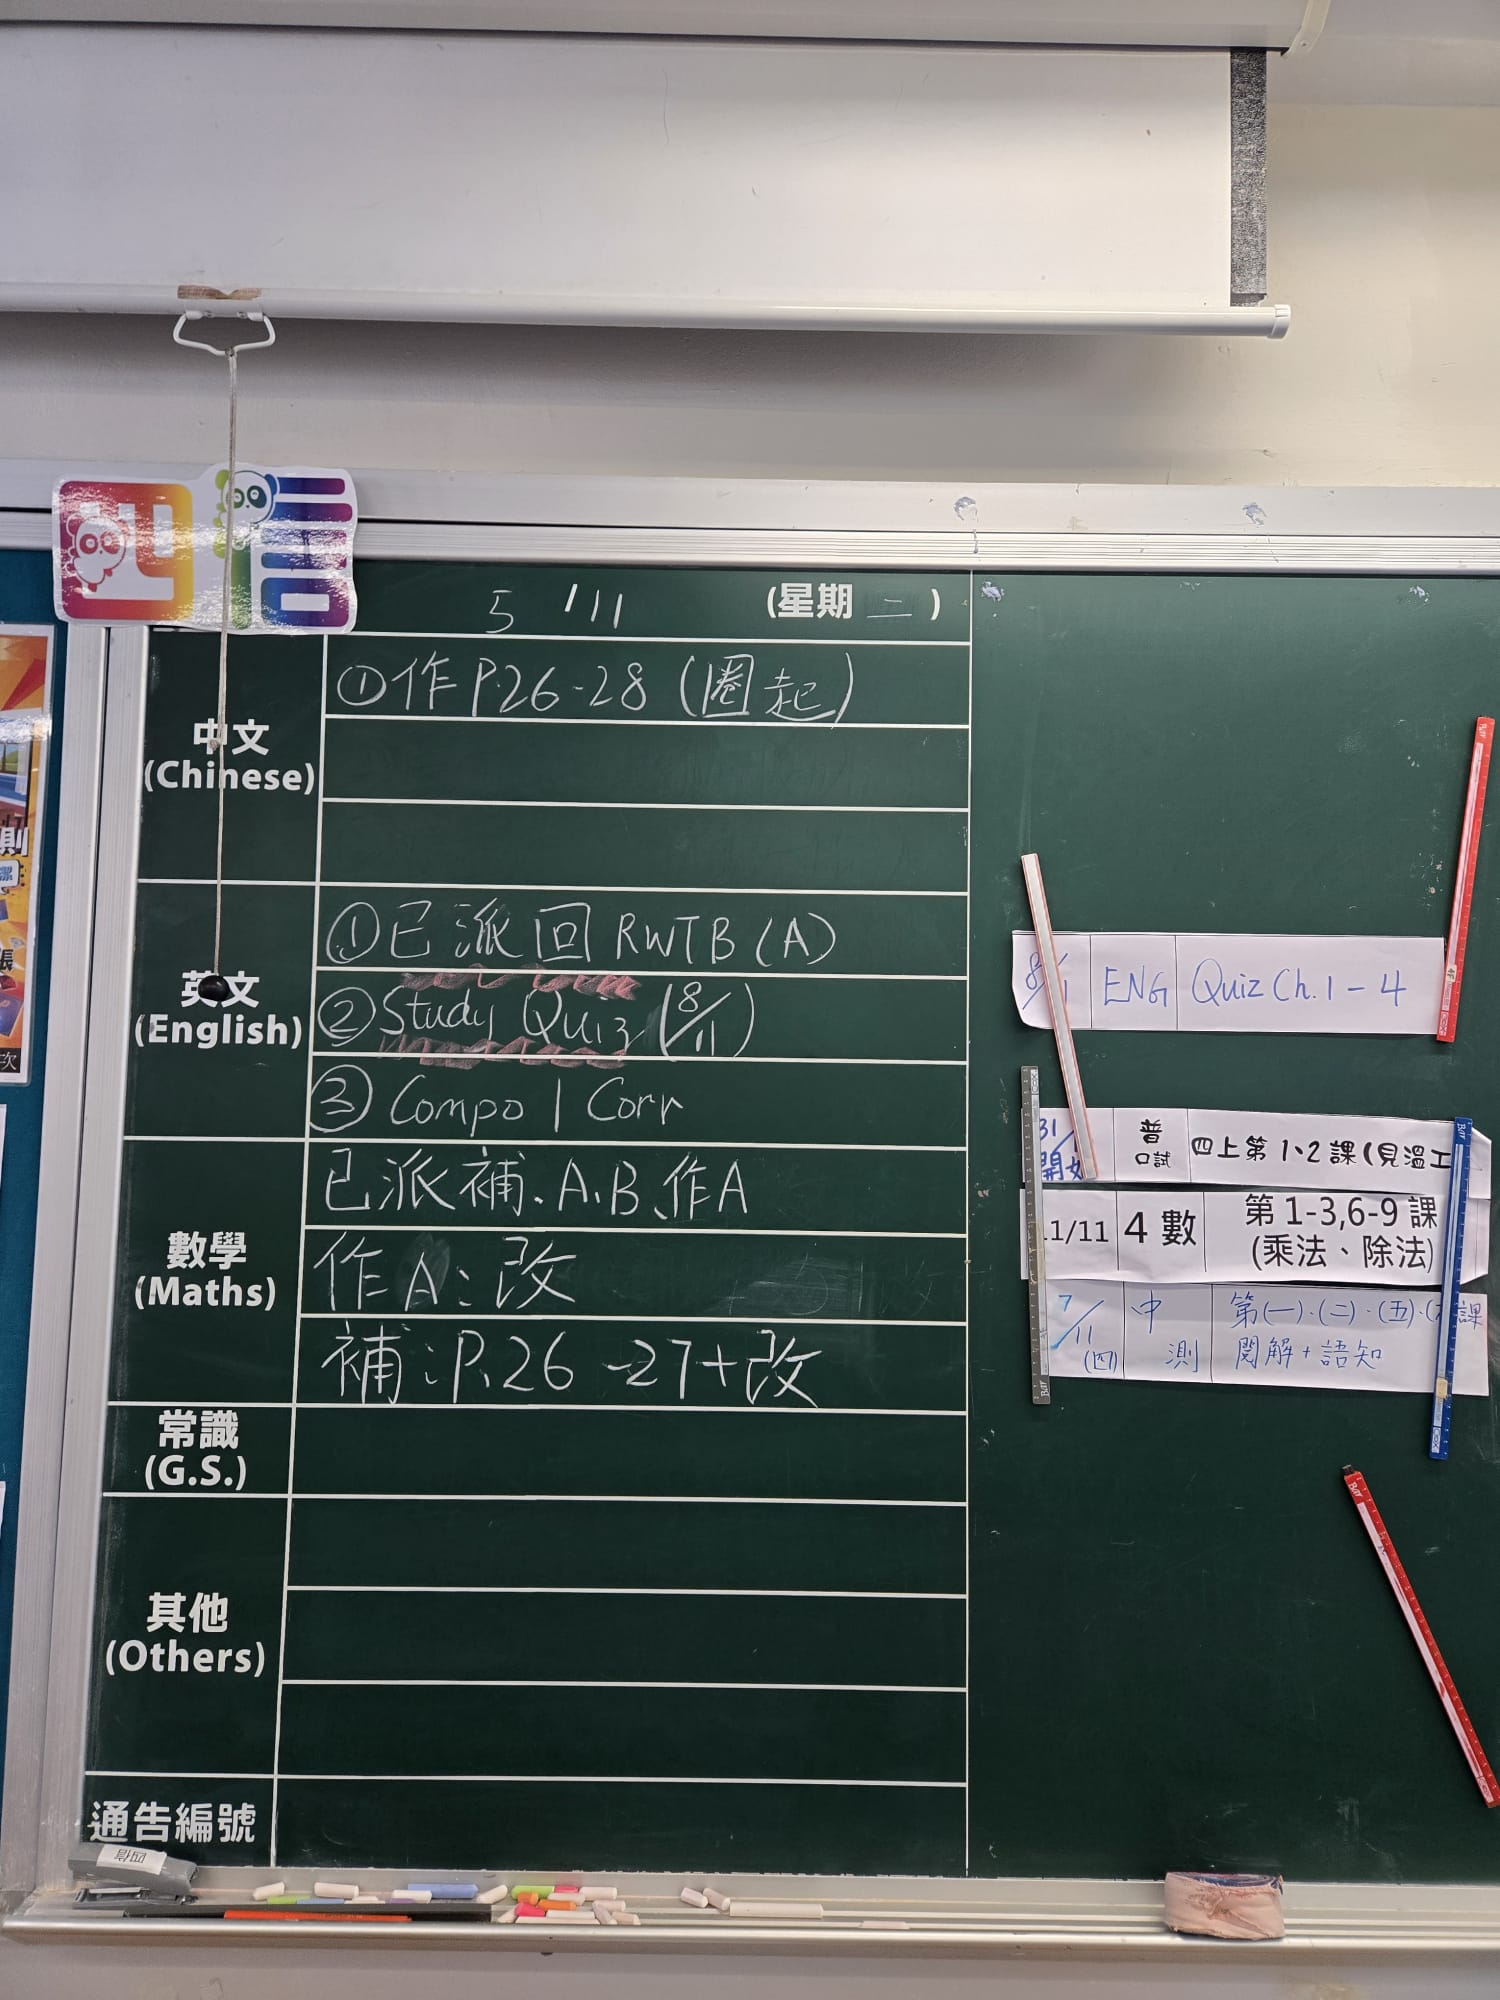 四信
5 / 11 (星期 二 )
中文
(Chinese)
①作 P.26-28 (圈起)
英文
(English)
①已派回 RWTB (A)
②Study Quiz (8/11)
③ Compo 1 Corr
數學
(Maths)
已派補、A、B、作A
作A:改
補:P.26-27+改
常識
(G.S.)
其他
(Others)
通告編號
四信
8/11 ENG Quiz Ch.1-4
31/ 開始 普 口試 四上第1、2課(見溫工
11/11 4數 第1-3,6-9課
(乘法、除法)
7/11 (四) 中測 第(一)·(二)·(五)·( 課
閱解+語知